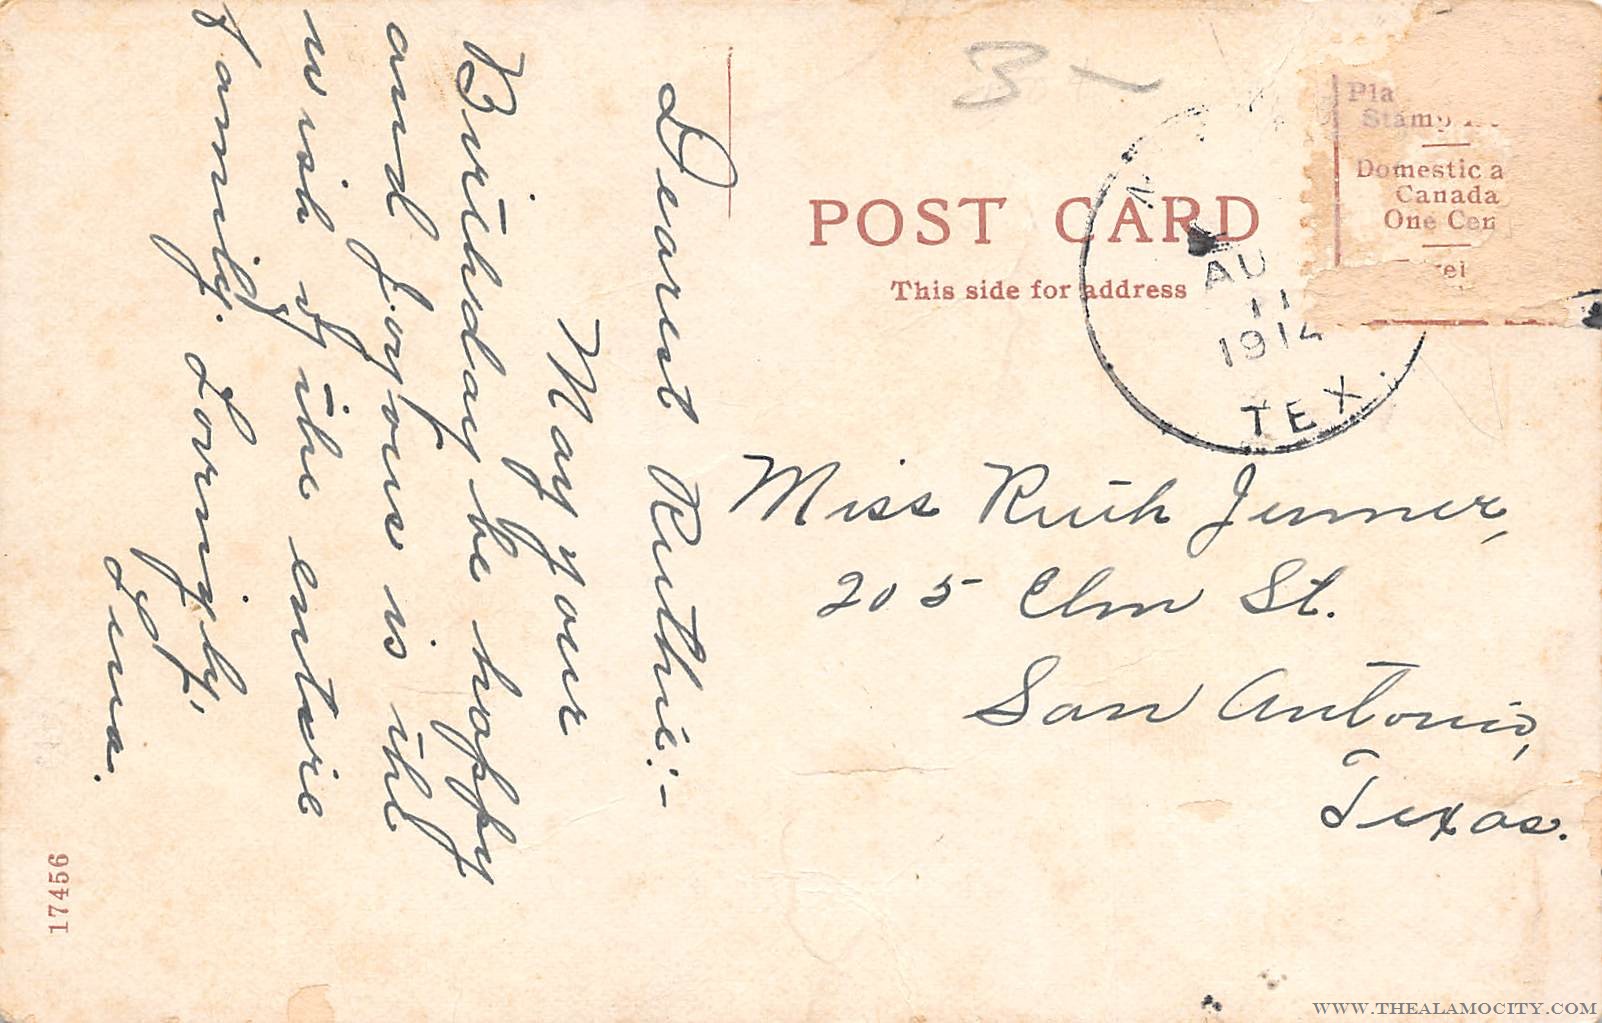 Dearest Ruthie:-
May your
Birthday be happy
and joyous is the
wish of the entire
family. Lovingly,
Lina.
17456
3 -
POST CARD
This side for address
AU
11
1914
TEX.
Pla
Stamp
Domestic a
Canada
One Cen
Miss Ruth Jenner,
205 Elm St.
San Antonio,
Texas.
WWW.THEALAMOCITY.COM